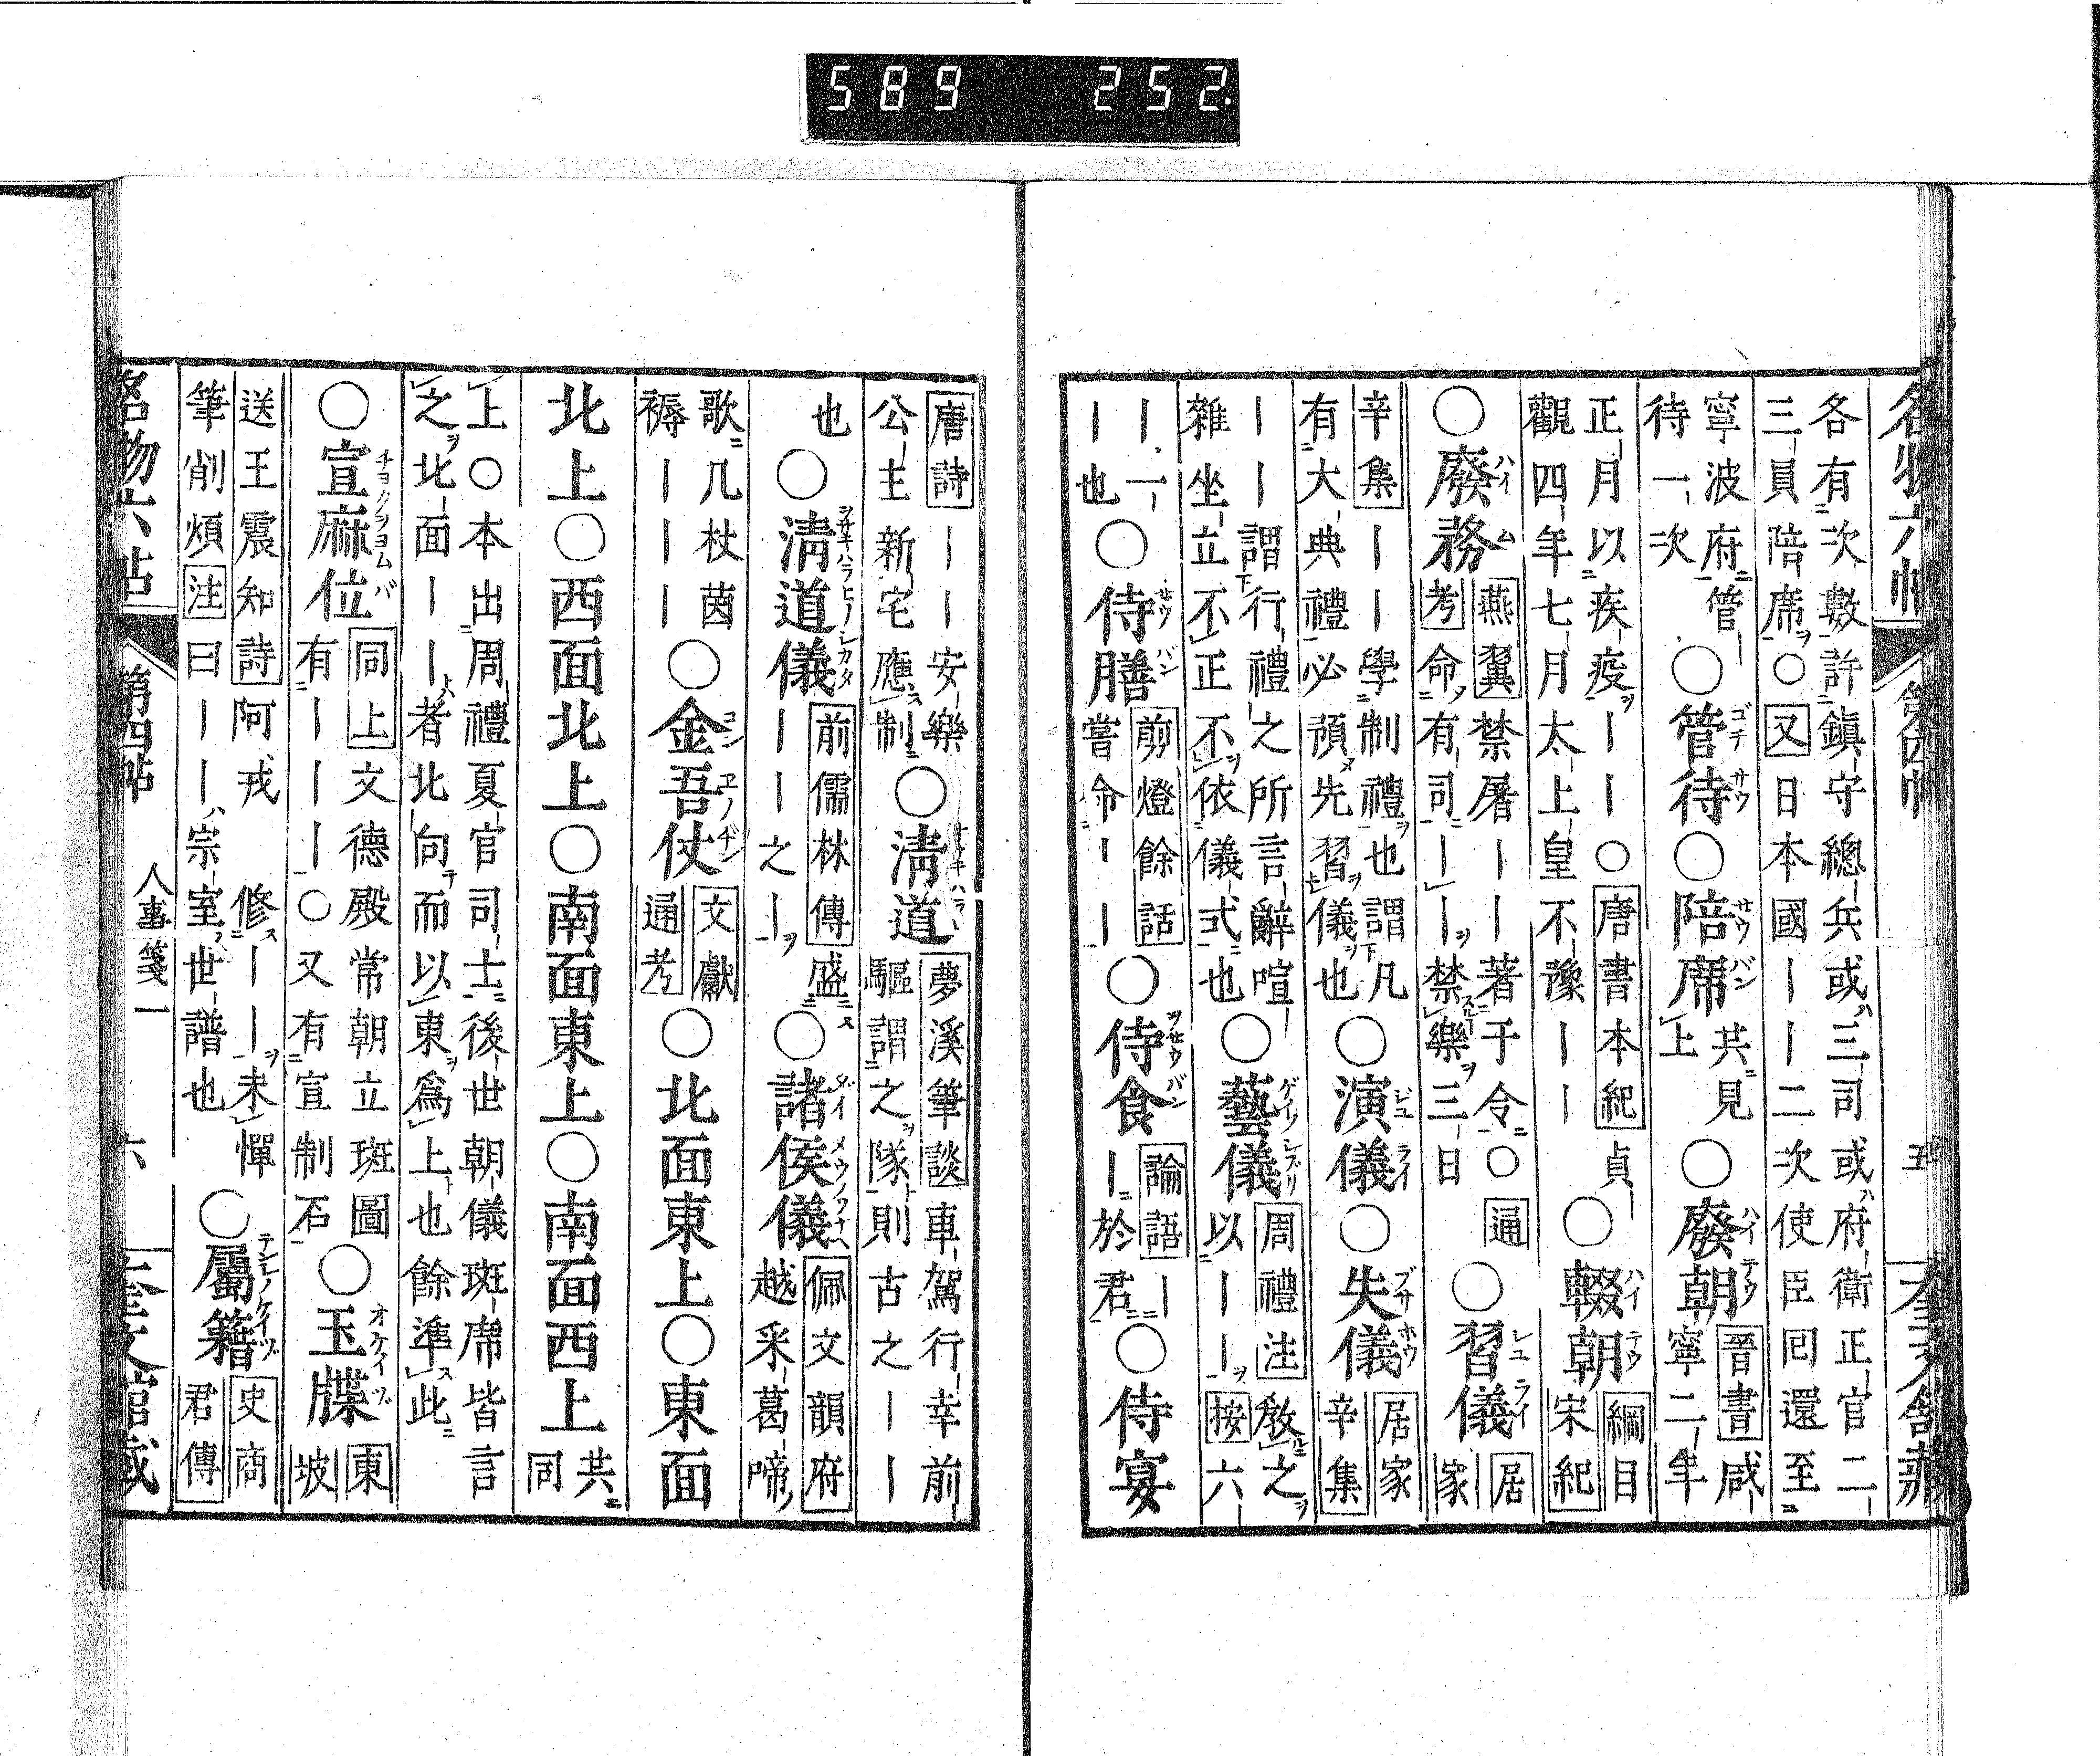 名物六帖 第四帖 五 奎文館藏
各有次數許鎮守總兵或三司或府衛正官二
三員陪席○又日本國——二次使臣回還至
寧波府管—
待一次
○管待○陪席
共見
上
○廢朝
晉書咸
寧二年
正月以疾疫——○唐書本紀貞
觀四年七月太上皇不豫——
○輟朝
綱目
宋紀
○廢務
燕翼禁屠——著于令○通
考命有司——禁樂三日
○習儀
居
家
辛集——學制禮也謂凡
有大典禮必預先習儀也
○演儀○失儀
居家
辛集
——謂行禮之所言辭喧
雜坐立不正不依儀式也
○藝儀
周禮注教之
以——按六
—一
—也
○侍膳
剪燈餘話
嘗命———
○侍食
論語—
—於君
○侍宴
唐詩——安樂
公主新宅應制
○淸道
夢溪筆談車駕行幸前
驅謂之隊則古之——
也
○淸道儀
前儒林傳盛
——之—
○諸侯儀
佩文韻府
越采葛啼
歌几杖茵
褥———
○金吾仗
文獻
通考
○北面東上○東面
北上○西面北上○南面東上○南面西上
共
同
上○本出周禮夏官司士後世朝儀班席皆言
之北面——者北向而以東爲上也餘準此
○宣麻位
同上文德殿常朝立班圖
有———○又有宣制石
○玉牒
東
坡
送王震知詩阿戎 修——未憚
筆削煩注曰——宗室世譜也
○屬籍
史商
君傳
名物六帖 第四帖 人事箋一 六 奎文館藏
589 252